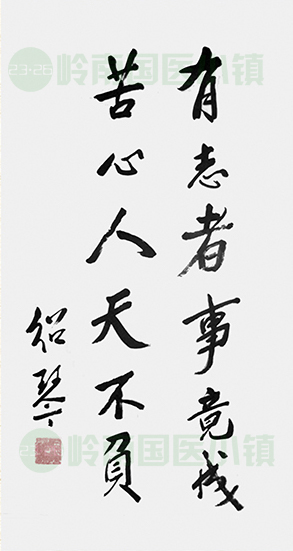 有志者事竟成
苦心人天不負
紹琴
23·26 岭南国医小镇
岭南国医小镇